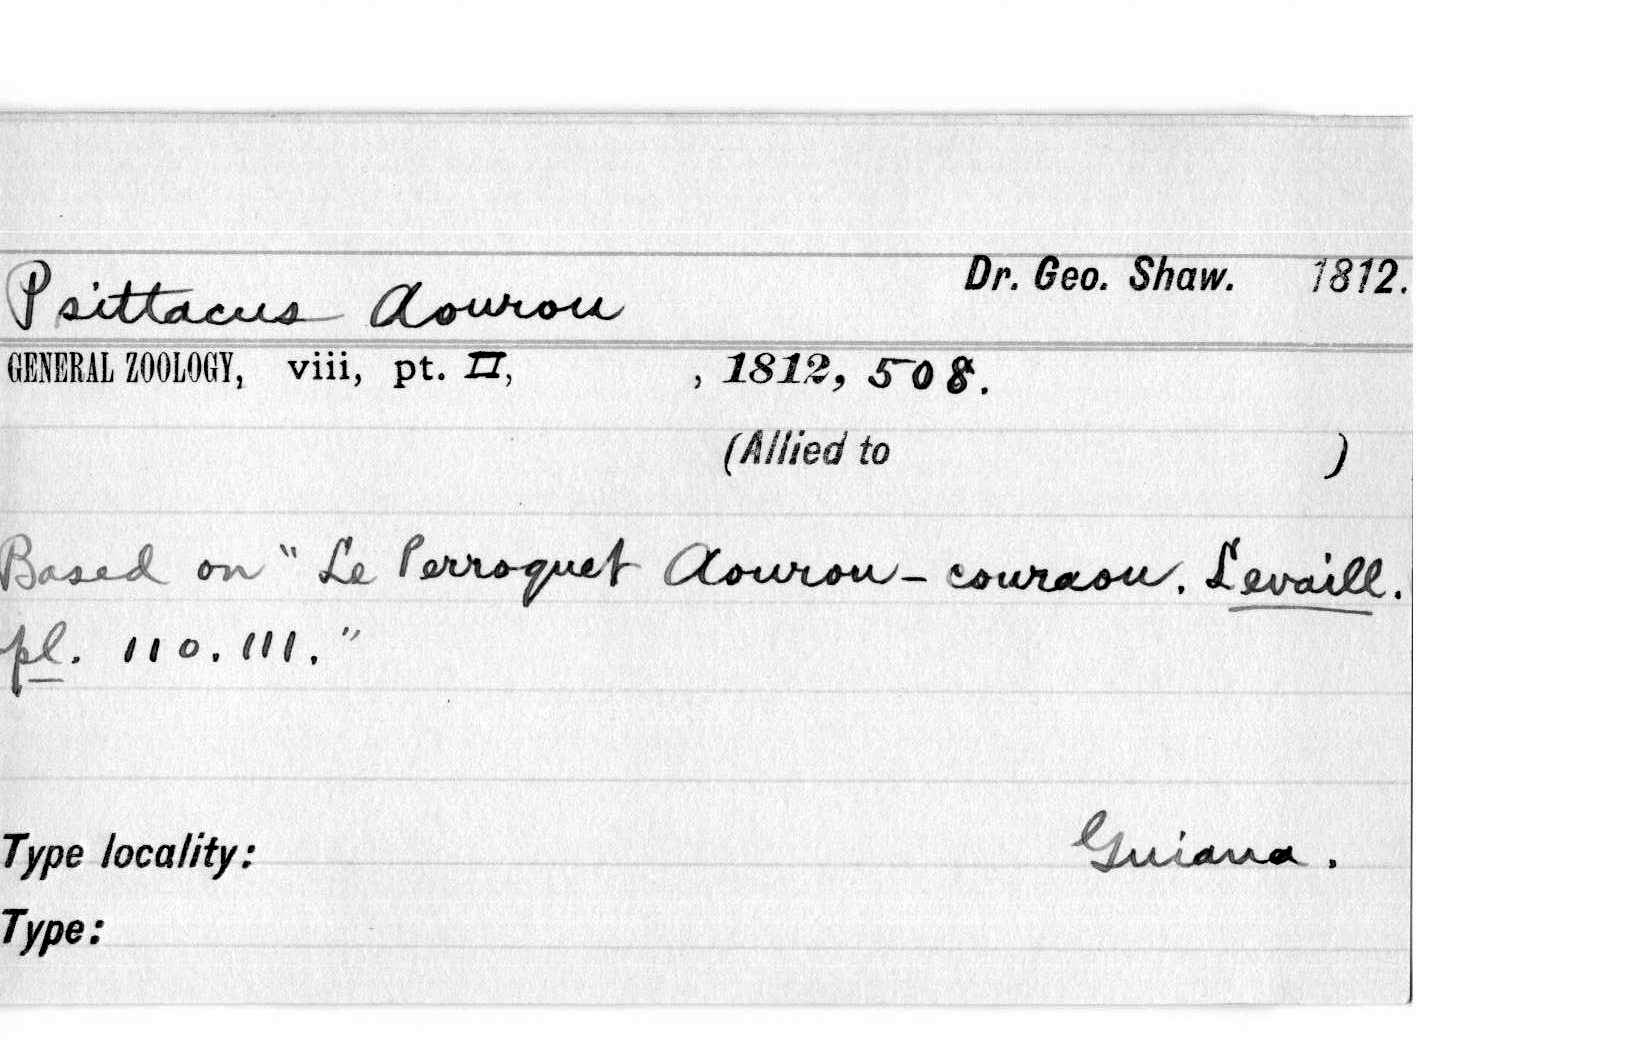 Psittacus Aourou Dr. Geo. Shaw. 1812.
GENERAL ZOOLOGY, viii, pt. II, , 1812, 508.
(Allied to )
Based on "Le Perroquet Aourou-couraou. Levaill.
pl. 110. 111."
Type locality: Guiana.
Type: